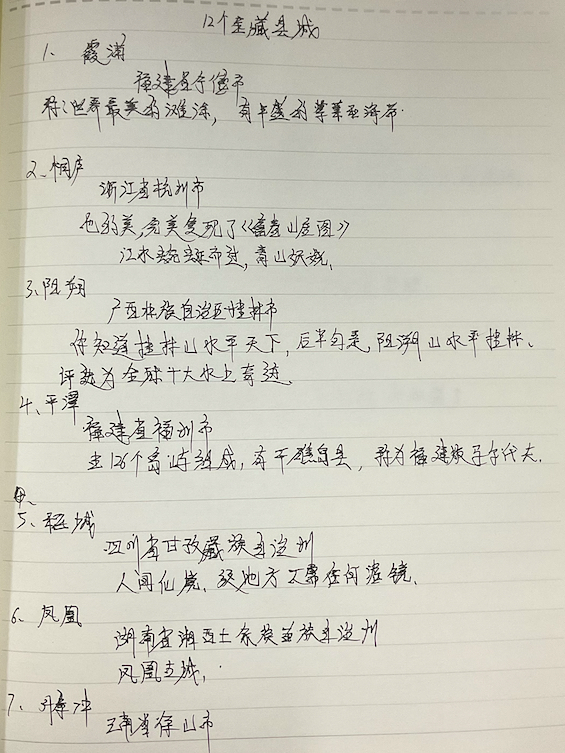 12个宝藏县城
1、霞浦
福建省宁德市
称：世界最美的滩涂，有丰盛的紫菜和海带.
2、桐庐
浙江省杭州市
它的美，完美复现了《富春山居图》
江水蜿蜒而过，青山妩媚、
3、阳朔
广西壮族自治区桂林市
你知道桂林山水甲天下，后半句是，阳朔山水甲桂林、
评选为全球十大水上奇迹、
4、平潭
福建省福州市
由126个岛屿组成，有千礁岛县，称为福建版马尔代夫.
5、稻城
四川省甘孜藏族自治州
人间仙境、级地方又需任何滤镜、
6、凤凰
湖南省湘西土家族苗族自治州
凤凰古城，
7、
云南省保山市